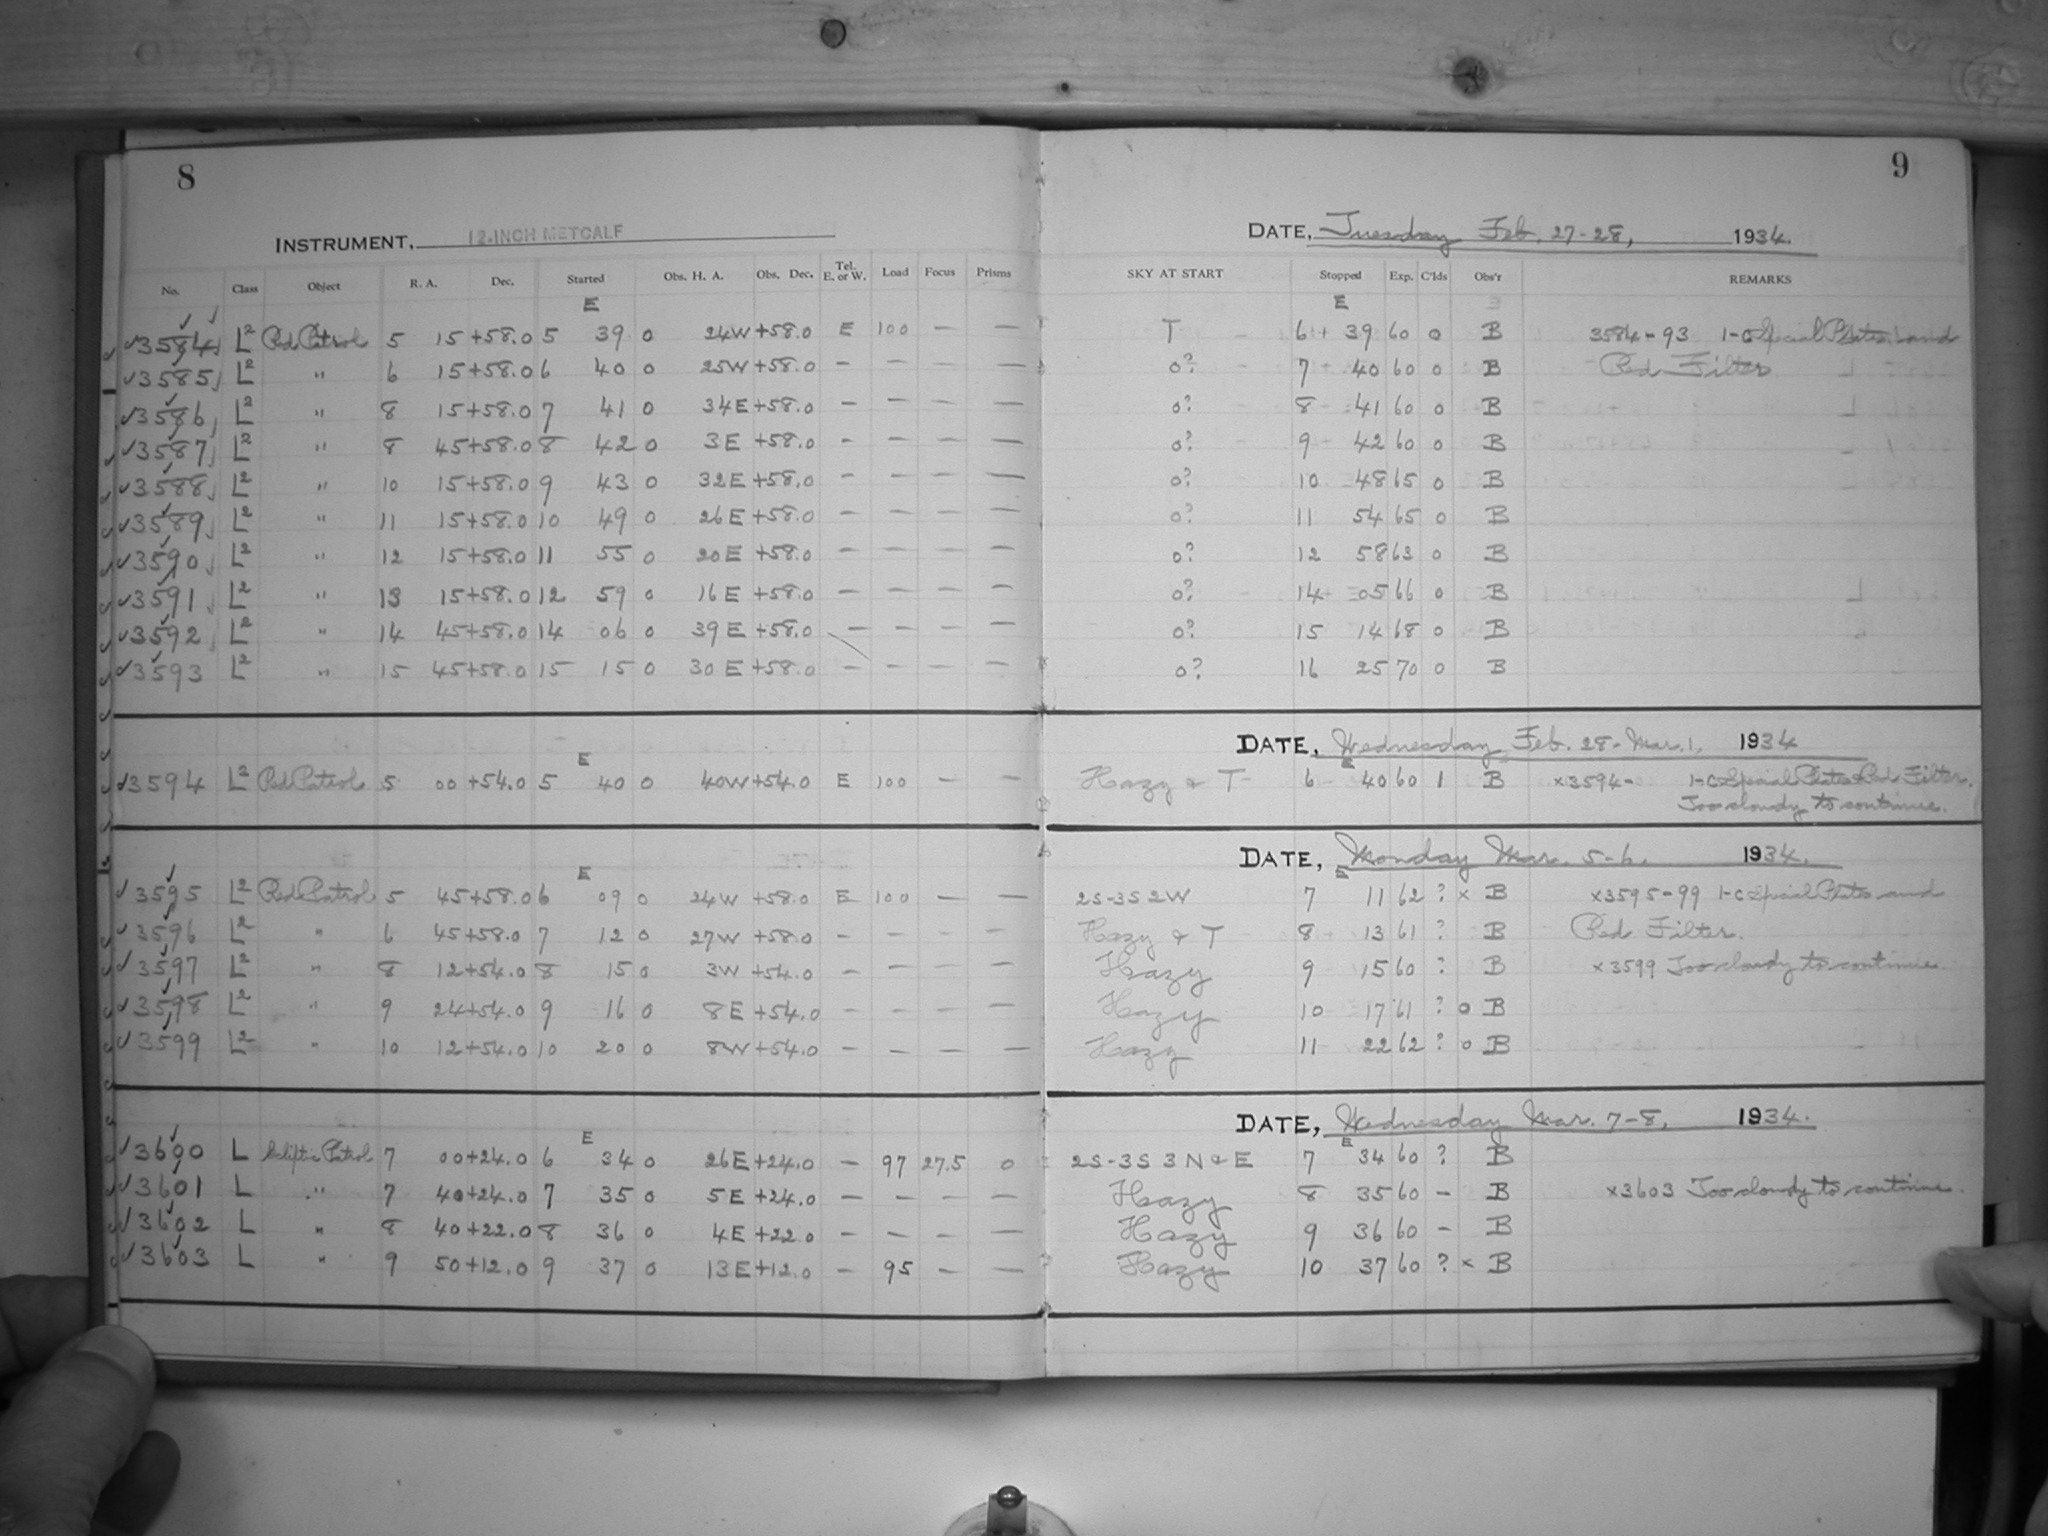 8
INSTRUMENT, 12-INCH METCALF
No. Class Object R. A. Dec. Started Obs. H. A. Obs. Dec. Tel. E. or W. Load Focus Prisms
E
3584 L2 Red Patrol 5 15 +58.0 5 39 0 24W +58.0 E 100 — —
3585 L2 " 6 15 +58.0 6 40 0 25W +58.0 — — —
3586 L2 " 8 15 +58.0 7 41 0 34E +58.0 — — — —
3587 L2 " 8 45 +58.0 8 42 0 3E +58.0 — — — —
3588 L2 " 10 15 +58.0 9 43 0 32E +58.0 — — — —
3589 L2 " 11 15 +58.0 10 49 0 26E +58.0 — — — —
3590 L2 " 12 15 +58.0 11 55 0 20E +58.0 — — — —
3591 L2 " 13 15 +58.0 12 59 0 16E +58.0 — — — —
3592 L2 " 14 45 +58.0 14 06 0 39E +58.0 — — — —
3593 L2 " 15 45 +58.0 15 15 0 30E +58.0 — — — —
E
3594 L2 Red Patrol 5 00 +54.0 5 40 0 40W +54.0 E 100 — —
E
3595 L2 Red Patrol 5 45 +58.0 6 09 0 24W +58.0 E 100 — —
3596 L2 " 6 45 +58.0 7 12 0 27W +58.0 — — — —
3597 L2 " 8 12 +54.0 8 15 0 3W +54.0 — — — —
3598 L2 " 9 24 +54.0 9 16 0 8E +54.0 — — — —
3599 L2 " 10 12 +54.0 10 20 0 8W +54.0 — — — —
E
3600 L Ecliptic Patrol 7 00 +24.0 6 34 0 26E +24.0 — 97 27.5 0
3601 L " 7 40 +24.0 7 35 0 5E +24.0 — — — —
3602 L " 8 40 +22.0 8 36 0 4E +22.0 — — — —
3603 L " 9 50 +12.0 9 37 0 13E +12.0 — 95 — —
9
DATE, Tuesday Feb. 27-28, 1934.
SKY AT START Stopped Exp. C'lds Obs'r REMARKS
E
T 6 39 60 0 B 3584-93 1-C Special Plates and
0? 7 40 60 0 B Red Filter
0? 8 41 60 0 B
0? 9 42 60 0 B
0? 10 48 65 0 B
0? 11 54 65 0 B
0? 12 58 63 0 B
0? 14 05 66 0 B
0? 15 14 68 0 B
0? 16 25 70 0 B
DATE, Wednesday Feb. 28-Mar. 1, 1934
E
Hazy & T 6 40 60 1 B x3594- 1-C Special Plates Red Filter.
Too cloudy to continue.
DATE, Monday Mar. 5-6, 1934.
E
2S-3S 2W 7 11 62 ? x B x3595-99 1-C Special Plates and
Hazy & T 8 13 61 ? B Red Filter.
Hazy 9 15 60 ? B x3599 Too cloudy to continue
Hazy 10 17 61 ? 0 B
Hazy 11 22 62 ? 0 B
DATE, Wednesday Mar. 7-8, 1934.
E
2S-3S 3N & E 7 34 60 ? B
Hazy 8 35 60 — B x3603 Too cloudy to continue.
Hazy 9 36 60 — B
Hazy 10 37 60 ? x B